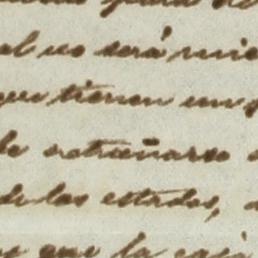 para
al no será
que tienen un
de estrañarse
de los estados,
que la